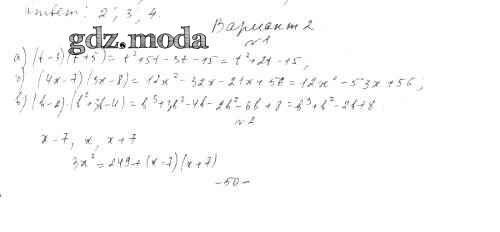 Ответ: 2; 3; 4.
Вариант 2
gdz.moda
№1
а) (t-3)(t+5) = t²+5t-3t-15 = t²+2t-15;
б) (4x-7)(3x-8) = 12x²-32x-21x+56 = 12x²-53x+56;
в) (b-2)·(b²+3b-4) = b³+3b²-4b-2b²-6b+8 = b³+b²-2b+8
№2
x-7, x, x+7
3x² = 249+(x-7)(x+7)
-50-